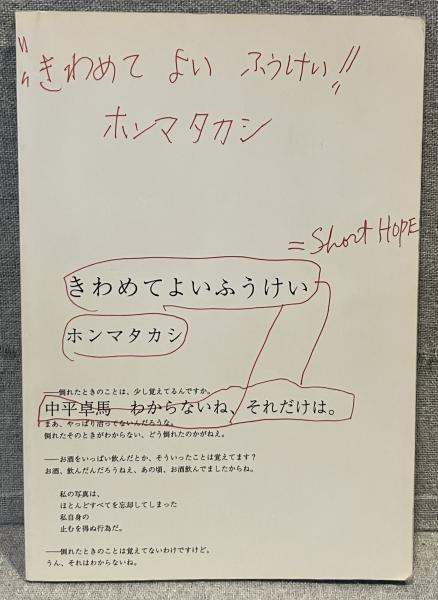 "きわめて よい ふうけい"
ホンマタカシ
= Short HOPE
きわめてよいふうけい
ホンマタカシ
──倒れたときのことは、少し覚えてるんですか。
中平卓馬 わからないね、それだけは。
まあ、やっぱり治ってないんだろうな。
倒れたそのときがわからない、どう倒れたのかがねえ。
──お酒をいっぱい飲んだとか、そういったことは覚えてます?
お酒、飲んだんだろうねえ、あの頃、お酒飲んでましたからね。
私の写真は、
ほとんどすべてを忘却してしまった
私自身の
止むを得ぬ行為だ。
──倒れたときのことは覚えてないわけですけど。
うん、それはわからないね。